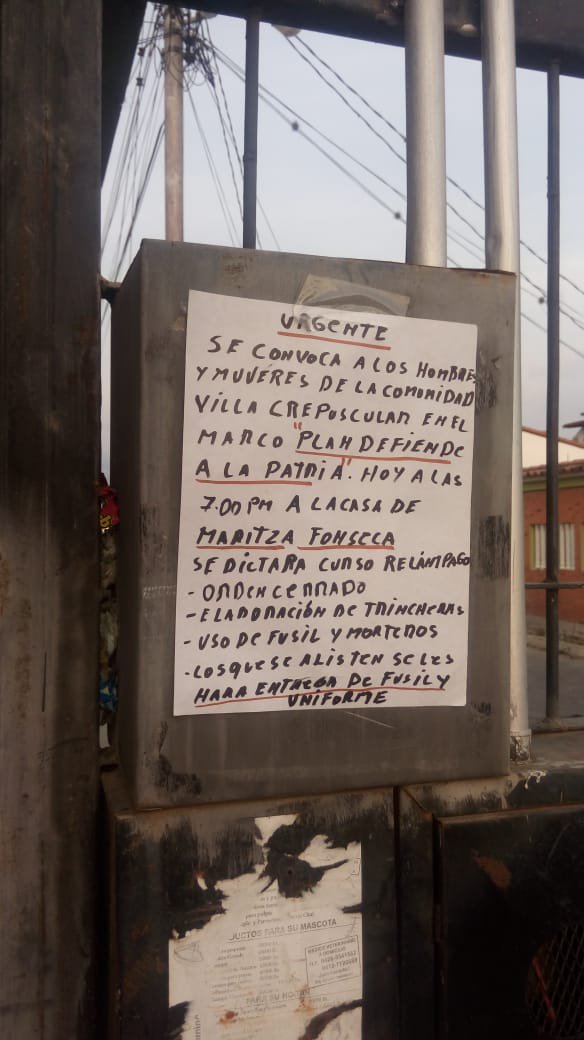 URGENTE
SE CONVOCA A LOS HOMBRES
Y MUVÉRES DE LA COMUNIDAD
VILLA CREPUSCULAR EN EL
MARCO "PLAN DEFIENDE
A LA PATRIA". HOY A LAS
7:00 PM A LA CASA DE
MARITZA FONSECA
SE DICTARA CURSO RELÁMPAGO
- ORDEN CERRADO
- ELABORACIÓN DE TRINCHERAS
- USO DE FUSIL Y MORTEROS
- LOS QUE SE ALISTEN SE LES
HARA ENTREGA DE FUSIL Y
UNIFORME
JUCTOS PARA SU MASCOTA
MÉDICO VETERINARIO
A DOMICILIO
PARA SU